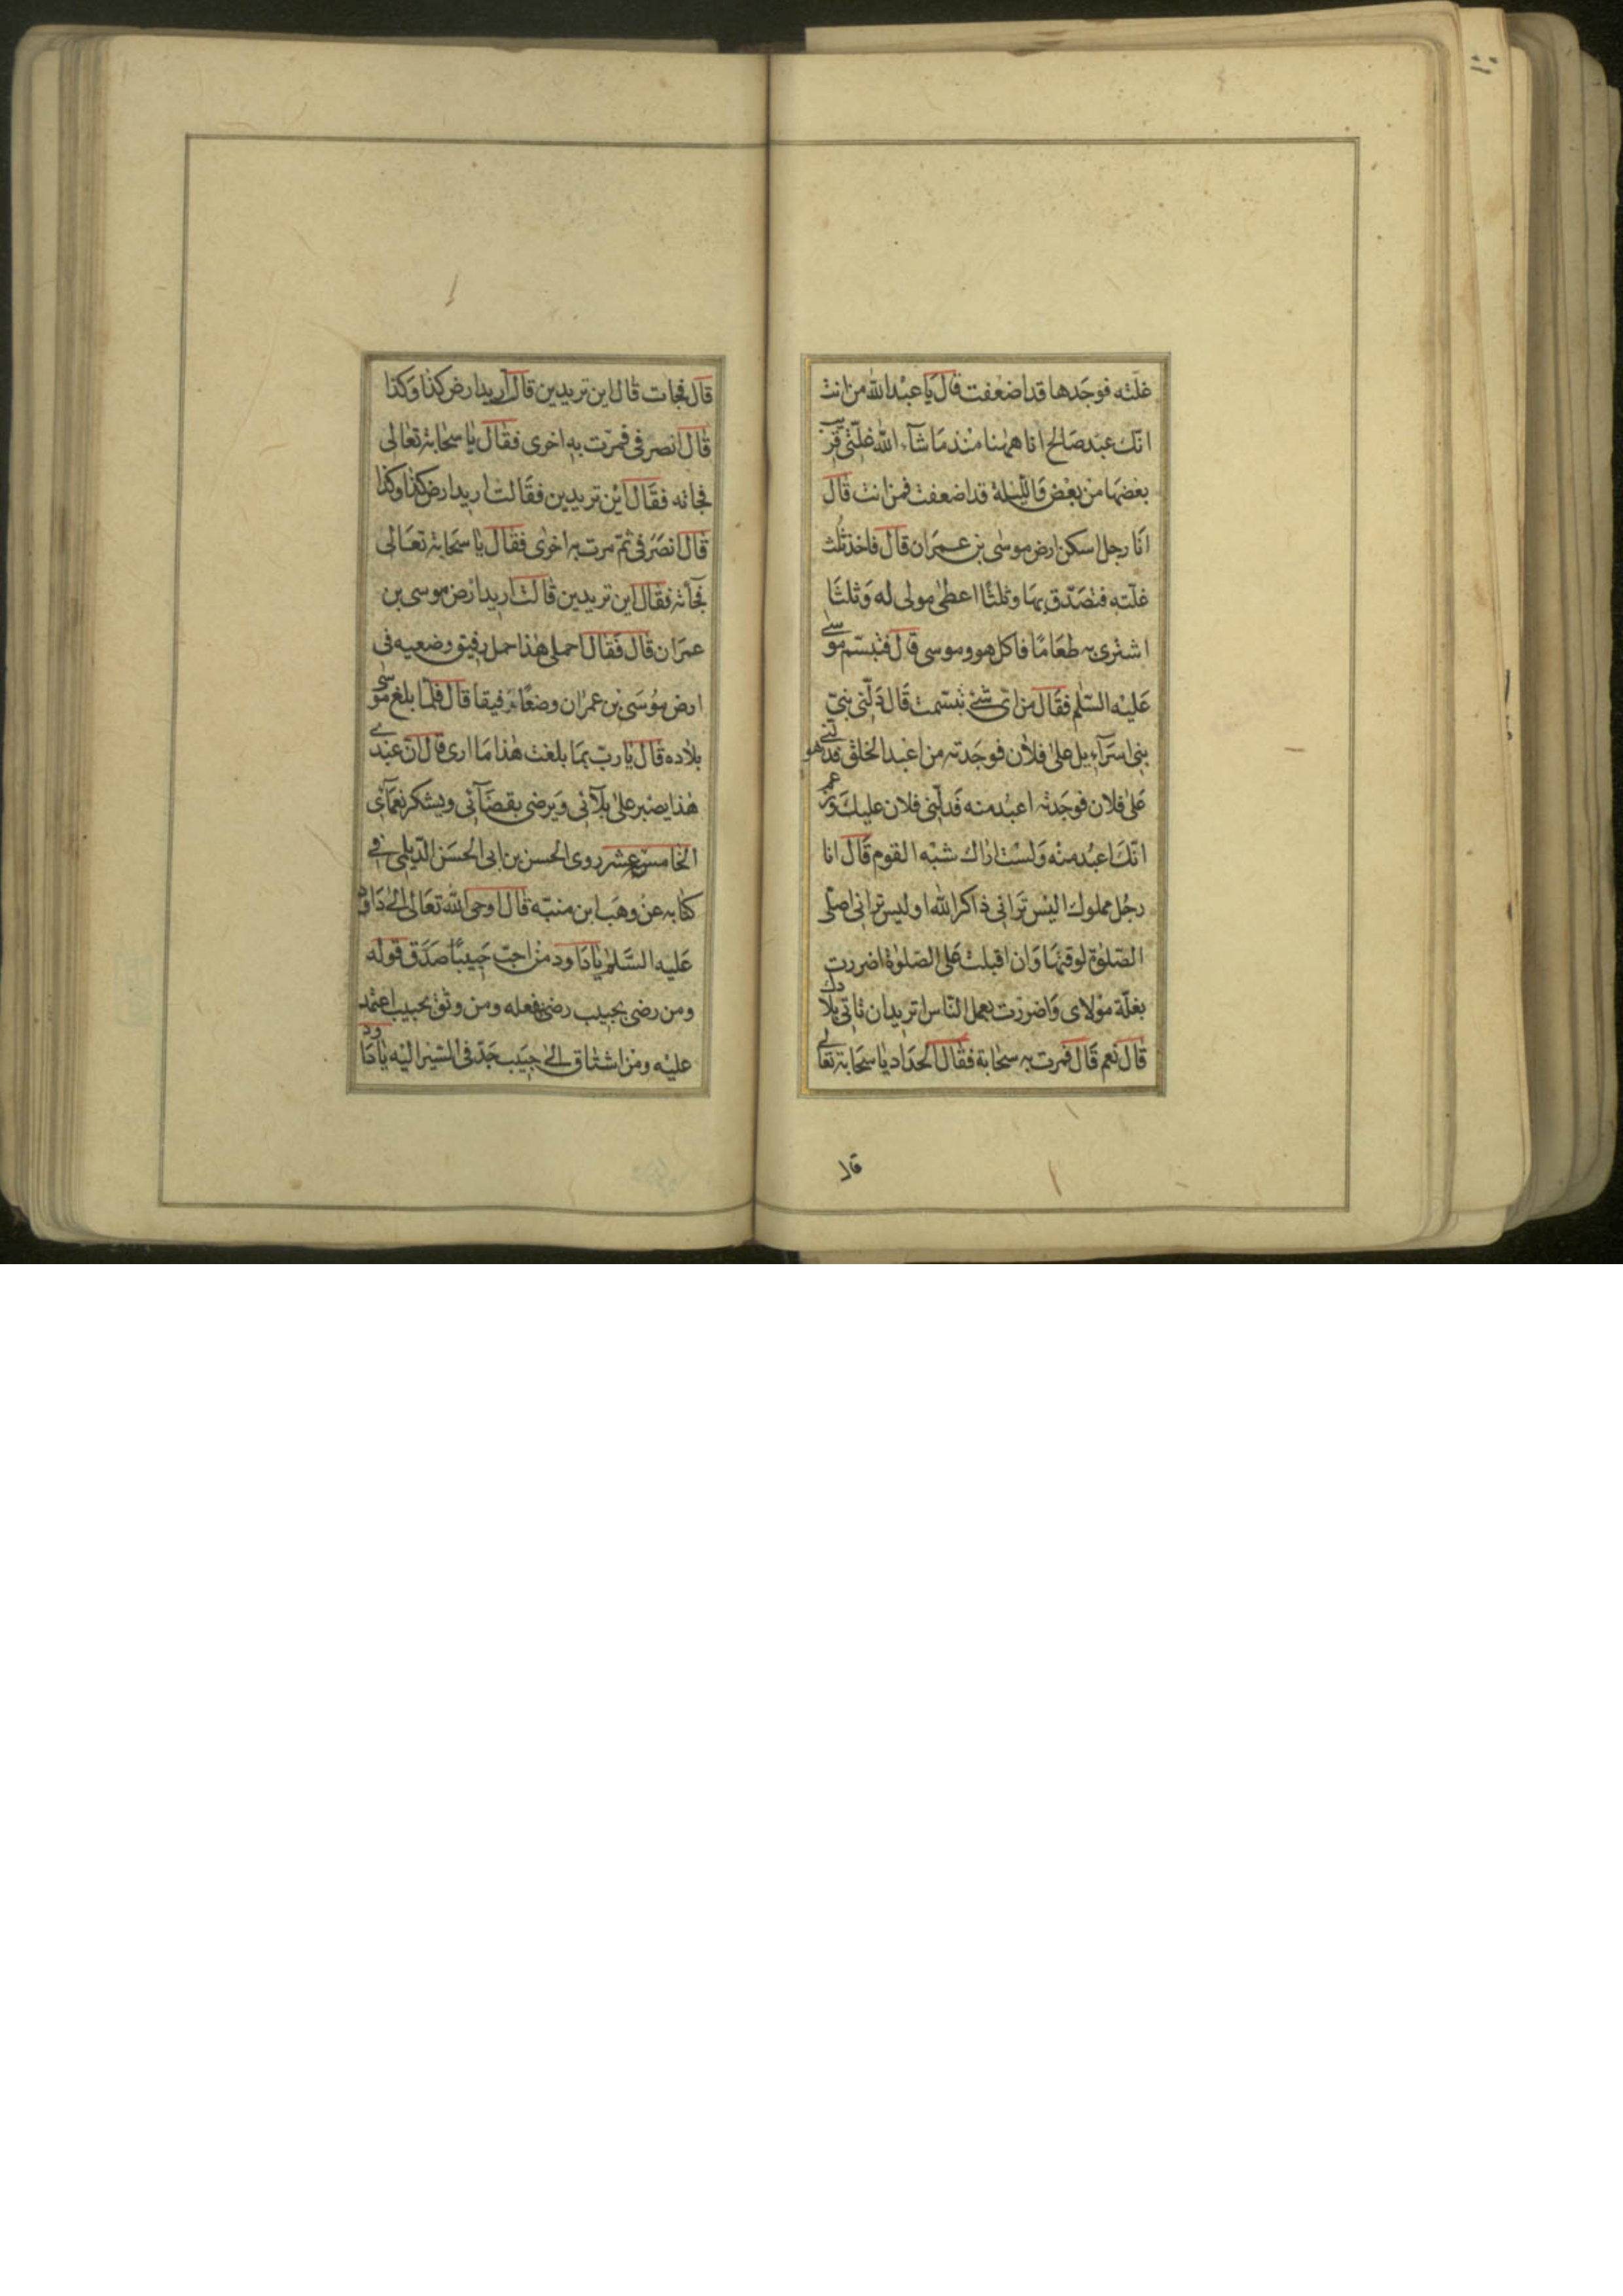 غلّته فوجدها قد اضعفت قال يا عبد الله من انت
انّك عبد صالح انا ههنا منذ ما شآء الله غلّتى قريب
بعضها من بعض والليلة قد اضعفت فمن انت قال
انا رجل اسكن ارض موسى بن عمران قال فاخذ ثلث
غلّته فتصدّق بها وثلثًا اعطى مولى له وثلثًا
اشترى به طعامًا فاكل هو وموسى قال فتبسّم موسى
عليه السّلم فقال من اىّ شئ تبسّمت قال دلّنى نبىّ
بنى اسرآءيل على فلان فوجدته من اعبد الخلق فدلّنى هو
على فلان فوجدته اعبد منه فدلّنى فلان عليك وزعم
انّك اعبد منه ولست اراك شبه القوم قال انا
رجل مملوك اليس ترانى ذاكرا لله اوليس ترانى اصلّى
الصّلوة لوقتها وان اقبلت على الصّلوة اضررت
بغلّة مولاى واضررت بعمل النّاس اتريد ان تاتى بلادك
قال نعم قال فمرت به سحابة فقال الحدّاد يا سحابة تعالى
قال
قال فجات قال اين تريدين قال اريد ارض كذا وكذا
قال انصرفى فمرّت به اخرى فقال يا سحابة تعالى
فجاته فقال اين تريدين فقالت اريد ارض كذا وكذا
قال انصرفى ثمّ مرت به اخرى فقال يا سحابة تعالى
فجآته فقال اين تريدين قالت اريد ارض موسى بن
عمران قال فقال احملى هذا حمل رفيق وضعيه فى
ارض موسى بن عمران وضعًا رفيقا قال فلمّا بلغ موسى
بلاده قال يا ربّ بما بلغت هذا ما ارى قال انّ عبدى
هذا يصبر على بلآئى ويرضى بقضآئى ويشكر نعمآئى
الخامس عشر روى الحسن بن ابى الحسن الدّيلمى فى
كتابه عن وهب ابن منبّه قال اوحى الله تعالى الى داود
عليه السّلم يا داود من احبّ حبيبًا صدّق قوله
ومن رضى بحبيب رضى بفعله ومن وثق بحبيب اعتمد
عليه ومن اشتاق الى حبيب جدّ فى السّير اليه يا داود